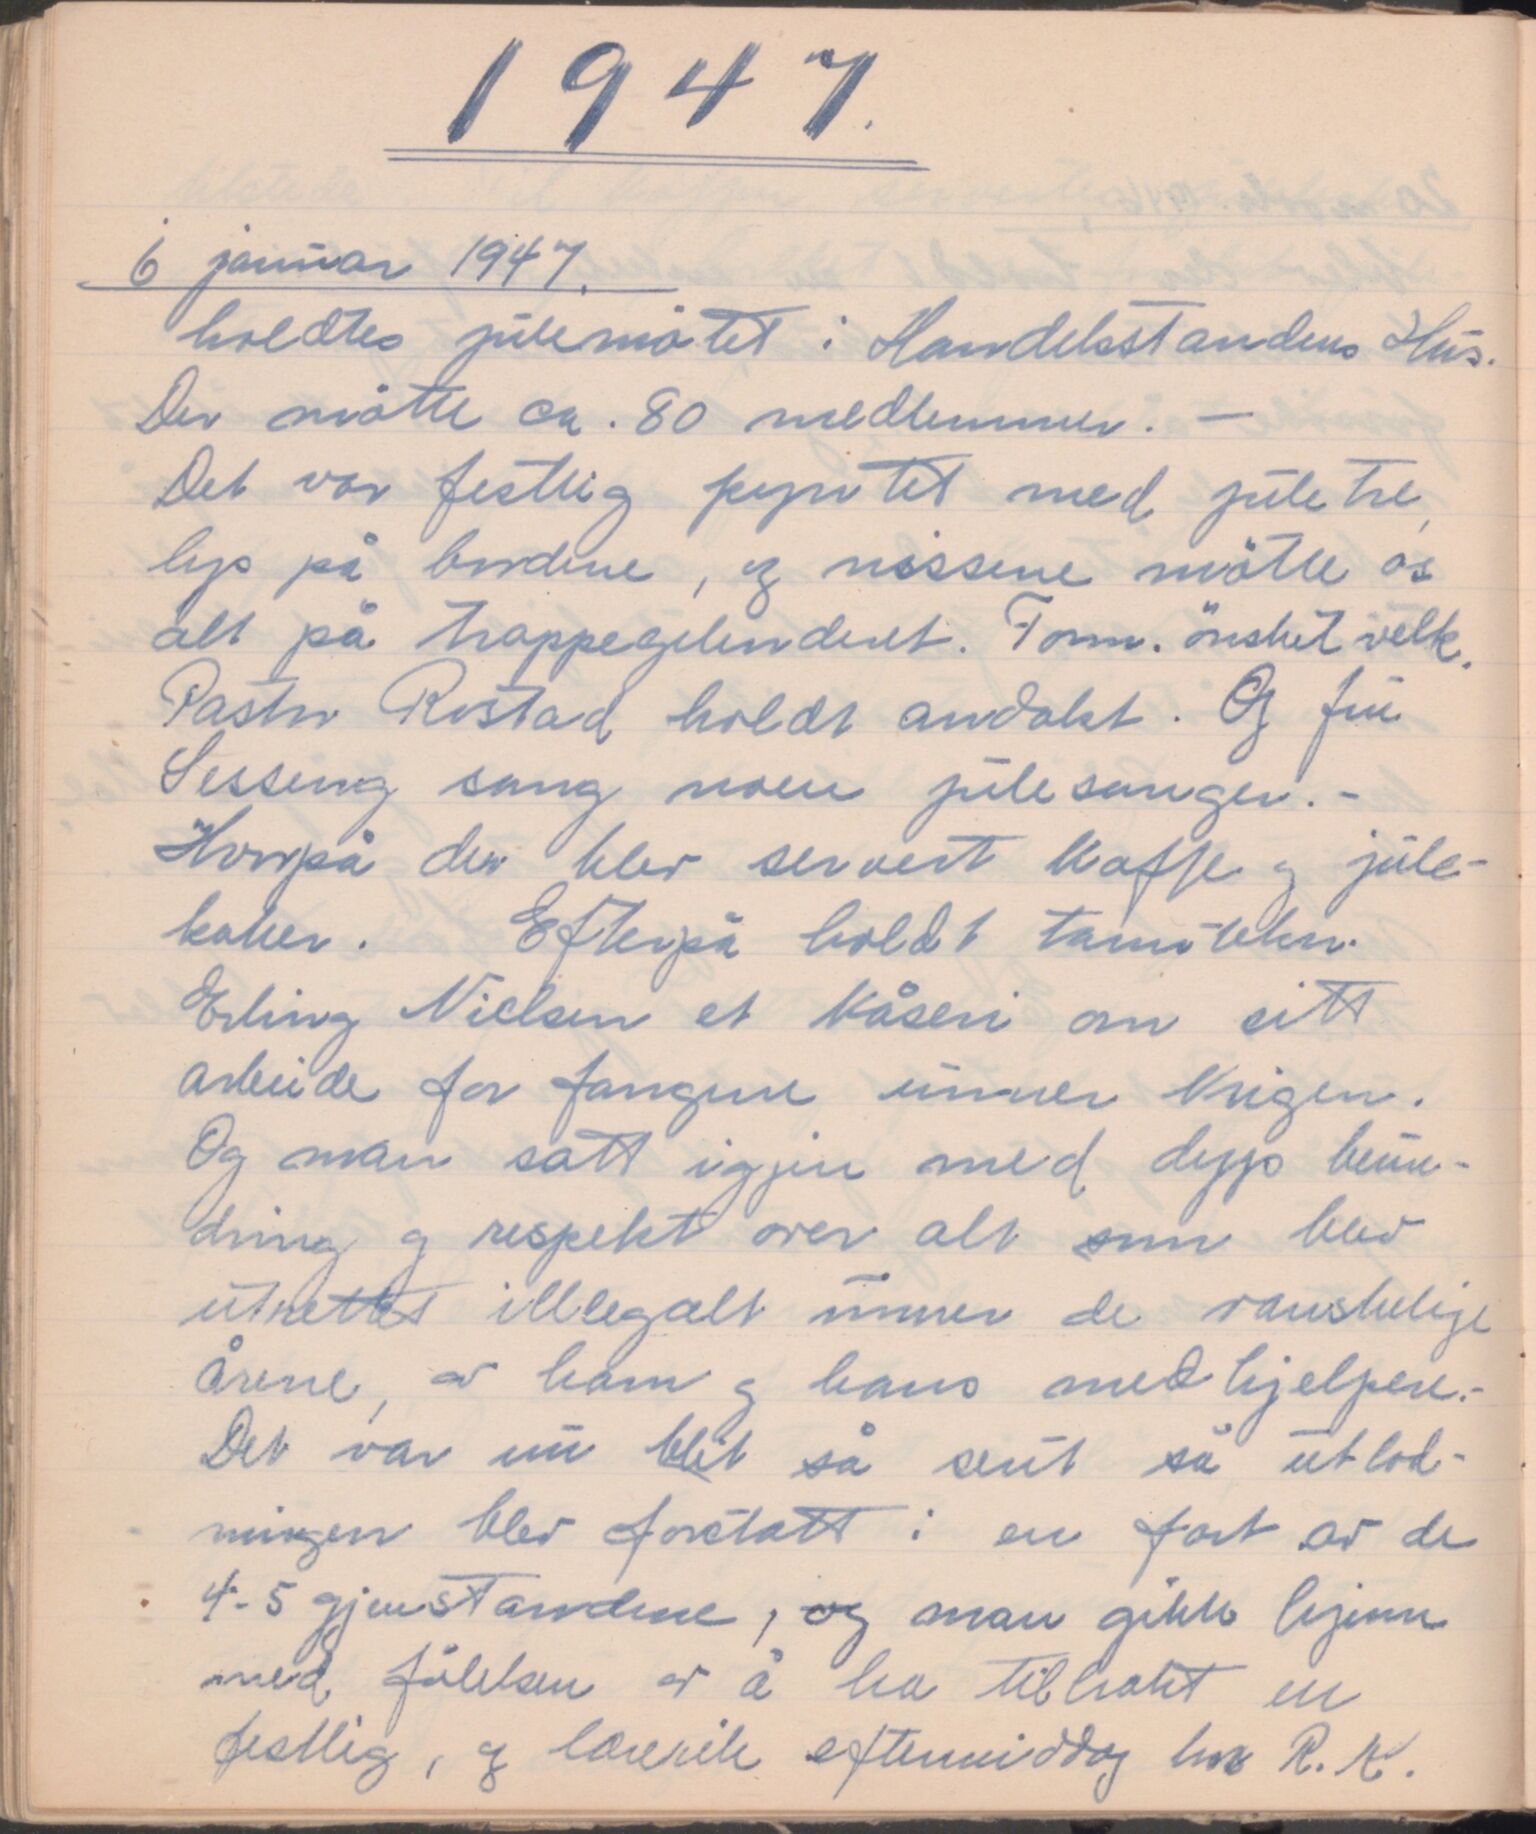 1947.
6 januar 1947.
holdtes julemøtet i Handelsstandens Hus.
Der møtte ca. 80 medlemmer. —
Det var festlig pyntet med juletre,
lys på bordene, og nissene møtte os
alt på trappegelenderet. Form. ønsket velk.
Pastor Rostad holdt andakt. Og fru
Sesseng sang noen julesanger. -
Hvorpå der blev servert kaffe og jule-
kaker. Efterpå holdt
Erling Nielsen et kåseri om sitt
arbeide for fangene unner krigen.
Og man satt igjen med dyps beun-
dring og respekt over alt som blev
utrettet illegalt unner de vanskelige
årene, av ham og hans medhjelpere. -
Det var nu blit så sent så utlod-
ningen blev foretatt i en fart av de
4-5 gjenstandene, og man gikk hjem
med følelsen av å ha tilbrakt en
festlig, og lærerik eftermiddag hos R. K.